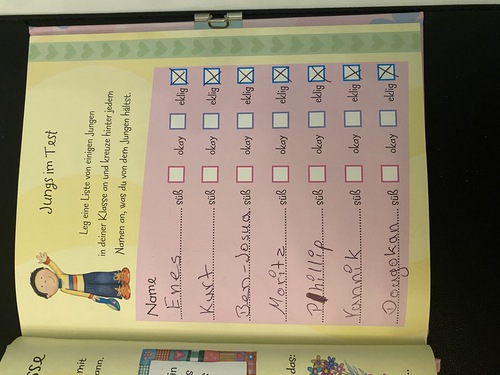 Jungs im Test
Leg eine Liste von einigen Jungen
in deiner Klasse an und kreuze hinter jedem
Namen an, was du von dem Jungen hältst.
Name
Enes süß okay eklig
Kurt süß okay eklig
Ben-Josua süß okay eklig
Moritz süß okay eklig
Phillip süß okay eklig
Yannik süß okay eklig
Dougokan süß okay eklig
sse
mit
ann.
s
in
das: